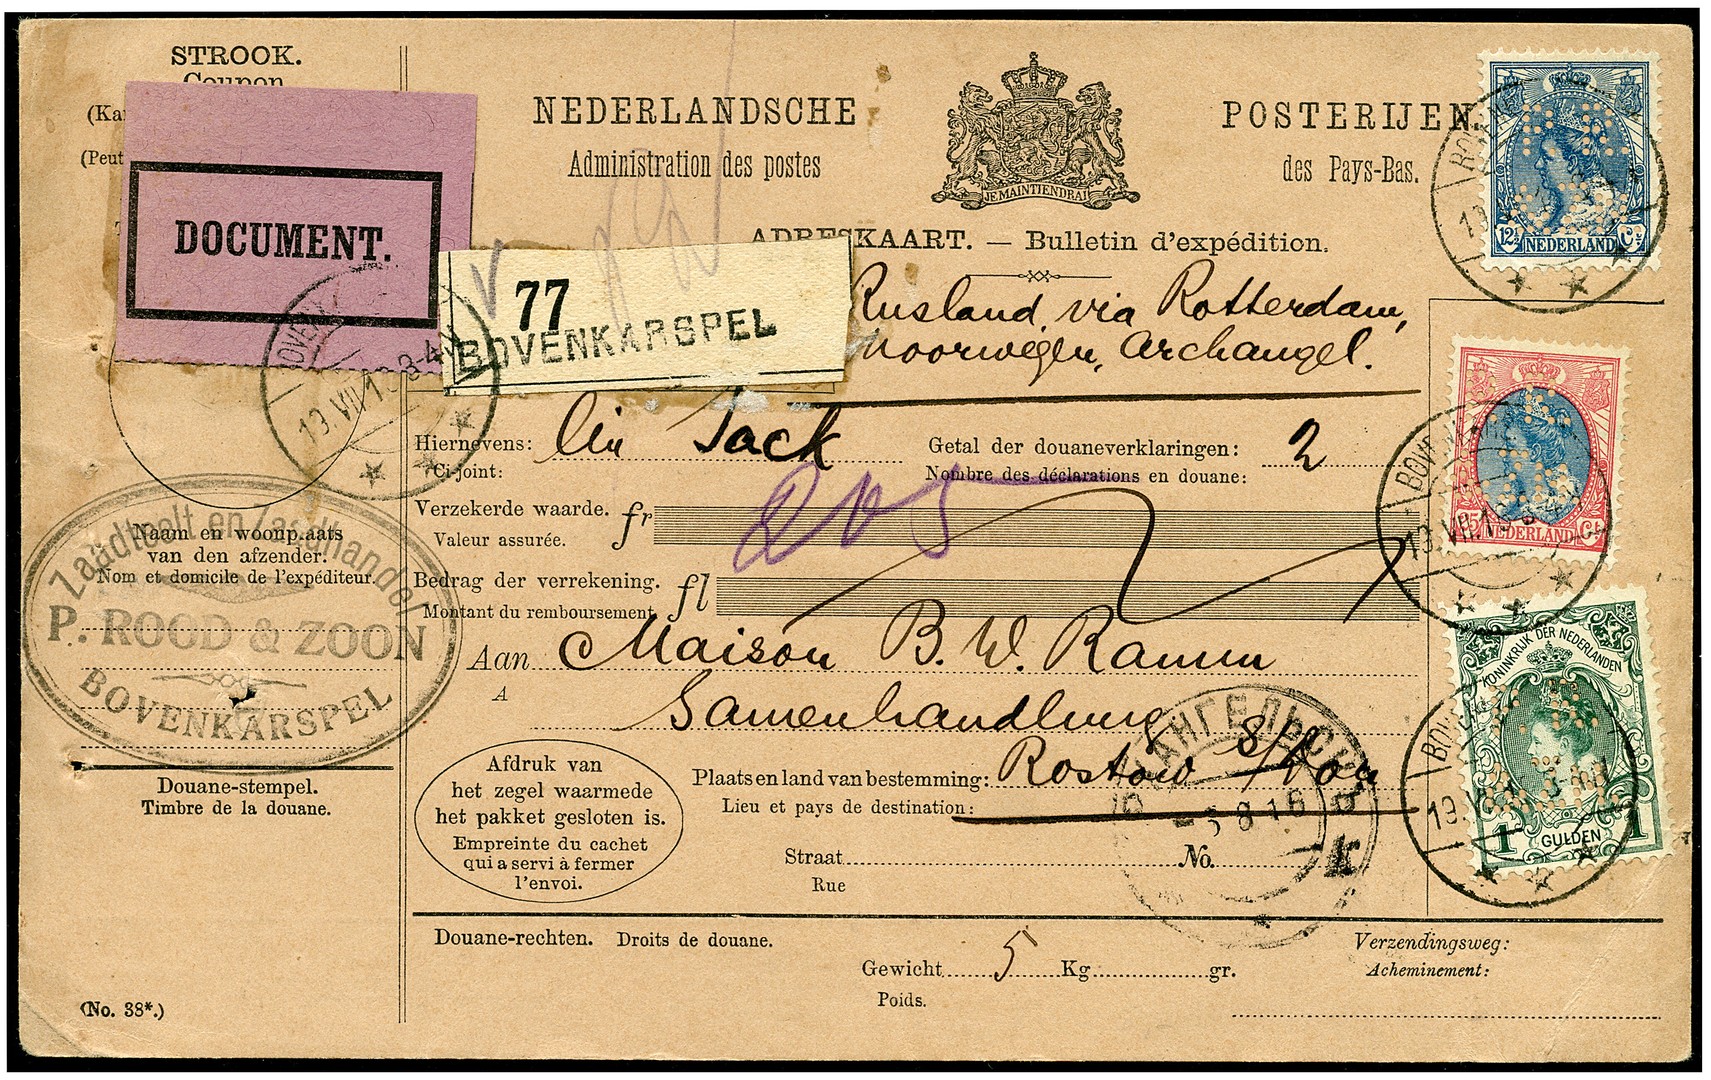 STROOK.
Coupon
(Ka
(Peut
DOCUMENT.
NEDERLANDSCHE POSTERIJEN.
Administration des postes des Pays-Bas.
JE MAINTIENDRAI
ADRESKAART. — Bulletin d'expédition.
77
BOVENKARSPEL
Rusland via Rotterdam,
Noorwegen, Archangel.
Hiernevens: Sack Getal der douaneverklaringen: 2
Ci-joint: Nombre des déclarations en douane:
Verzekerde waarde. fr
Valeur assurée.
205
Bedrag der verrekening. fl
Montant du remboursement.
Aan Maison B. W. Ramm
A
Samenhandlung
Plaats en land van bestemming: Rostow s/Don
Lieu et pays de destination:
Straat No.
Rue
Afdruk van
het zegel waarmede
het pakket gesloten is.
Empreinte du cachet
qui a servi à fermer
l'envoi.
Naam en woonplaats
van den afzender.
Nom et domicile de l'expéditeur.
Zaadteelt en Zaadhandel
P. ROOD & ZOON
BOVENKARSPEL
Douane-stempel.
Timbre de la douane.
(No. 38*.)
Douane-rechten. Droits de douane.
Gewicht 5 Kg. gr.
Poids.
Verzendingsweg:
Acheminement:
12½ NEDERLAND Ct
NEDERLAND Ct
KONINKRIJK DER NEDERLANDEN
1 GULDEN 1
-3 8 16
k